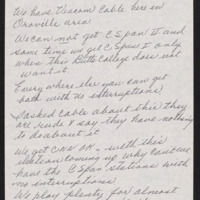 We have Viacom Cable here in
Oroville area
We can not get C Span II and
some time we get C Span I only
when this Butte College does not
want it.
Every where else you can get
both with no interruptions
I asked Cable about this they
are rude & say they have nothing
to do about it
We get CNN OK - with this
election coming up why cant we
have the C Span stations with
no interruptions
We pay plenty for almost